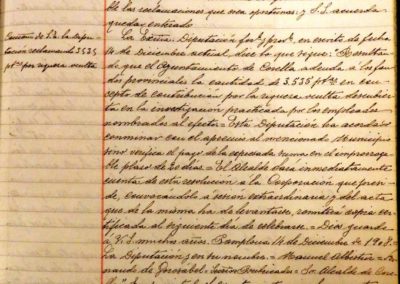 las reclamaciones que sean oportunas; y S.S. acuerda
quedar enterado
Comunic. de S.E. la Dipu-
tación reclamando 3.535
pts por riqueza oculta
La Excma. Diputación foral y prov. en escrito de fecha
14 de Diciembre actual, dice lo que sigue: "Resulta
de que el Ayuntamiento de Corella adeuda a los fon-
dos provinciales la cantidad de 3.535 pts en con-
cepto de contribución por la riqueza oculta descubier-
ta en la investigación practicada por los empleados
nombrados al efecto = Esta Diputación ha acordado
conminar con el apremio al mencionado Municipio
si no verifica el pago de la expresada suma en el improrroga-
ble plazo de 20 días = El Alcalde dará inmediatamente
cuenta de esta resolución a la Corporación que presi-
de, convocándola a sesión extraordinaria y del acta
que de la misma ha de levantarse, remitirá copia cer-
tificada al siguiente día de celebrarse = Dios guarde
a V.S. muchos años. Pamplona 14 de Diciembre de 1908 =
La Diputación y en su nombre = Manuel Albistur =
de = Rubricados = Sr. Alcalde de Core-